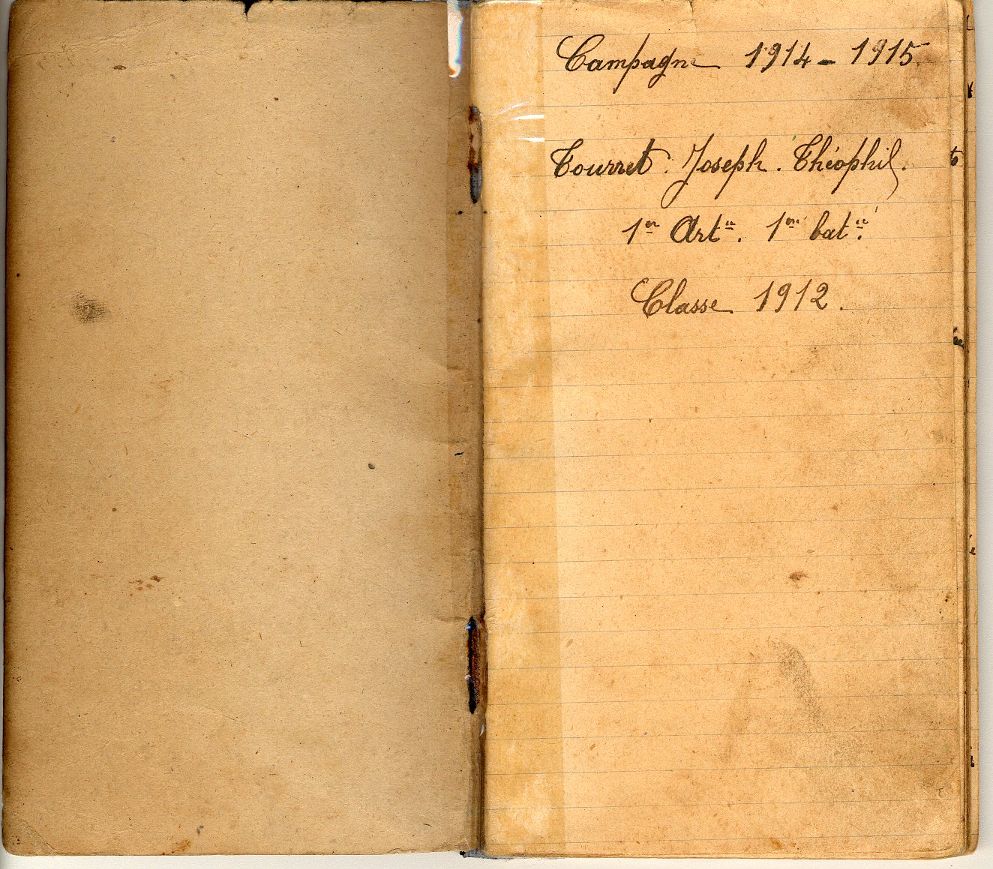 Campagne 1914 - 1915.
Tourret. Joseph. Théophil.
1er Artie. 1ère batie.
Classe 1912.